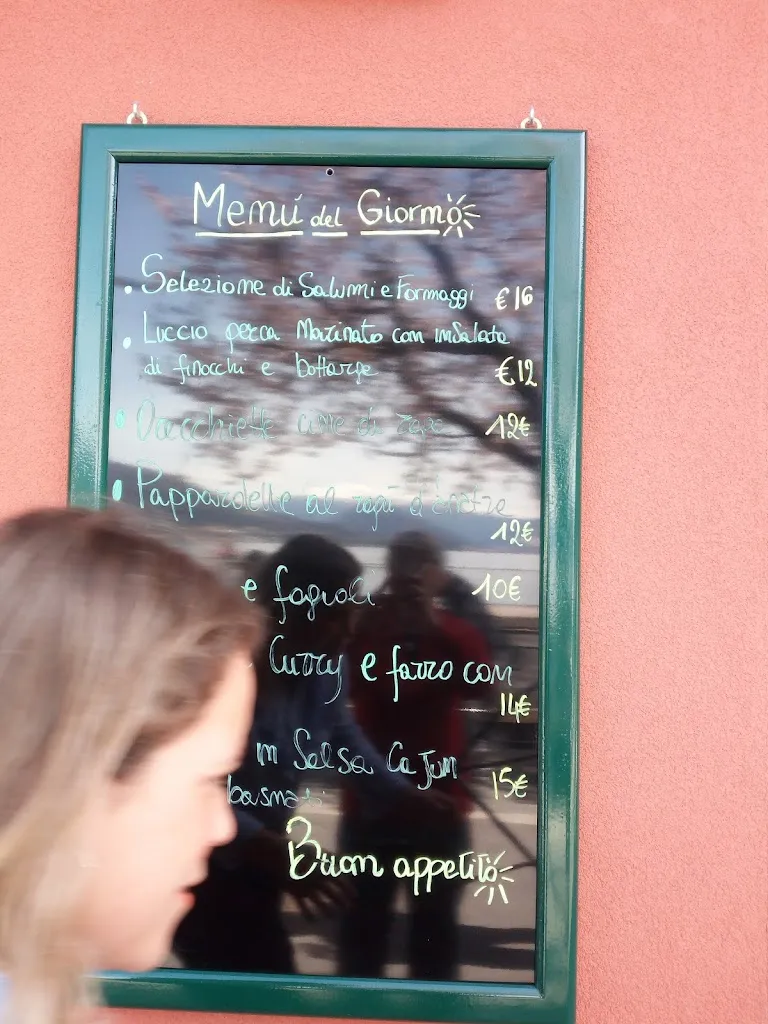 Menú del Giorno
• Selezione di Salumi e Formaggi €16
• Luccio perca Marinato con insalata
di finocchi e bottarge €12
• Orecchiette cime di rape 12€
• Pappardelle al ragù d'anatra
12€
e fagioli 10€
Curry e farro con
14€
in Salsa Cajun
basmati 15€
Buon appetito